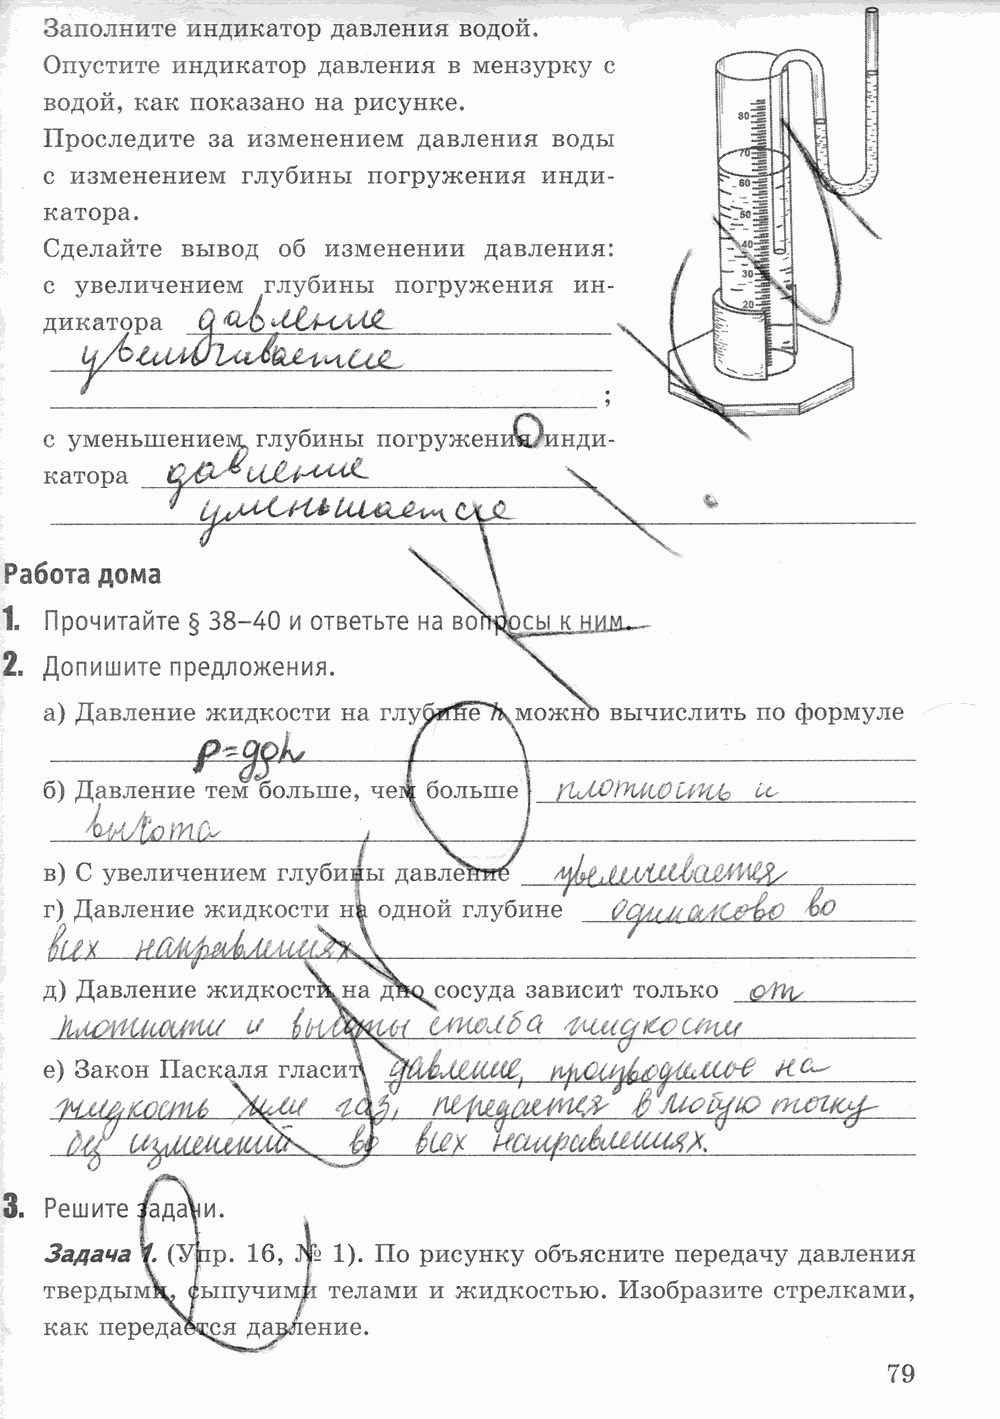 Заполните индикатор давления водой.
Опустите индикатор давления в мензурку с
водой, как показано на рисунке.
Проследите за изменением давления воды
с изменением глубины погружения инди-
катора.
Сделайте вывод об изменении давления:
с увеличением глубины погружения ин-
дикатора давление
увеличивается
;
с уменьшением глубины погружения инди-
катора давление
уменьшается
80
70
60
50
40
30
20
Работа дома
1. Прочитайте § 38–40 и ответьте на вопросы к ним.
2. Допишите предложения.
а) Давление жидкости на глубине h можно вычислить по формуле
p=gρh
б) Давление тем больше, чем больше плотность и
высота
в) С увеличением глубины давление увеличивается
г) Давление жидкости на одной глубине одинаково во
всех направлениях
д) Давление жидкости на дно сосуда зависит только от
плотности и высоты столба жидкости
е) Закон Паскаля гласит давление, производимое на
жидкость или газ, передается в любую точку
без изменений во всех направлениях.
3. Решите задачи.
Задача 1. (Упр. 16, № 1). По рисунку объясните передачу давления
твердыми, сыпучими телами и жидкостью. Изобразите стрелками,
как передаётся давление.
79